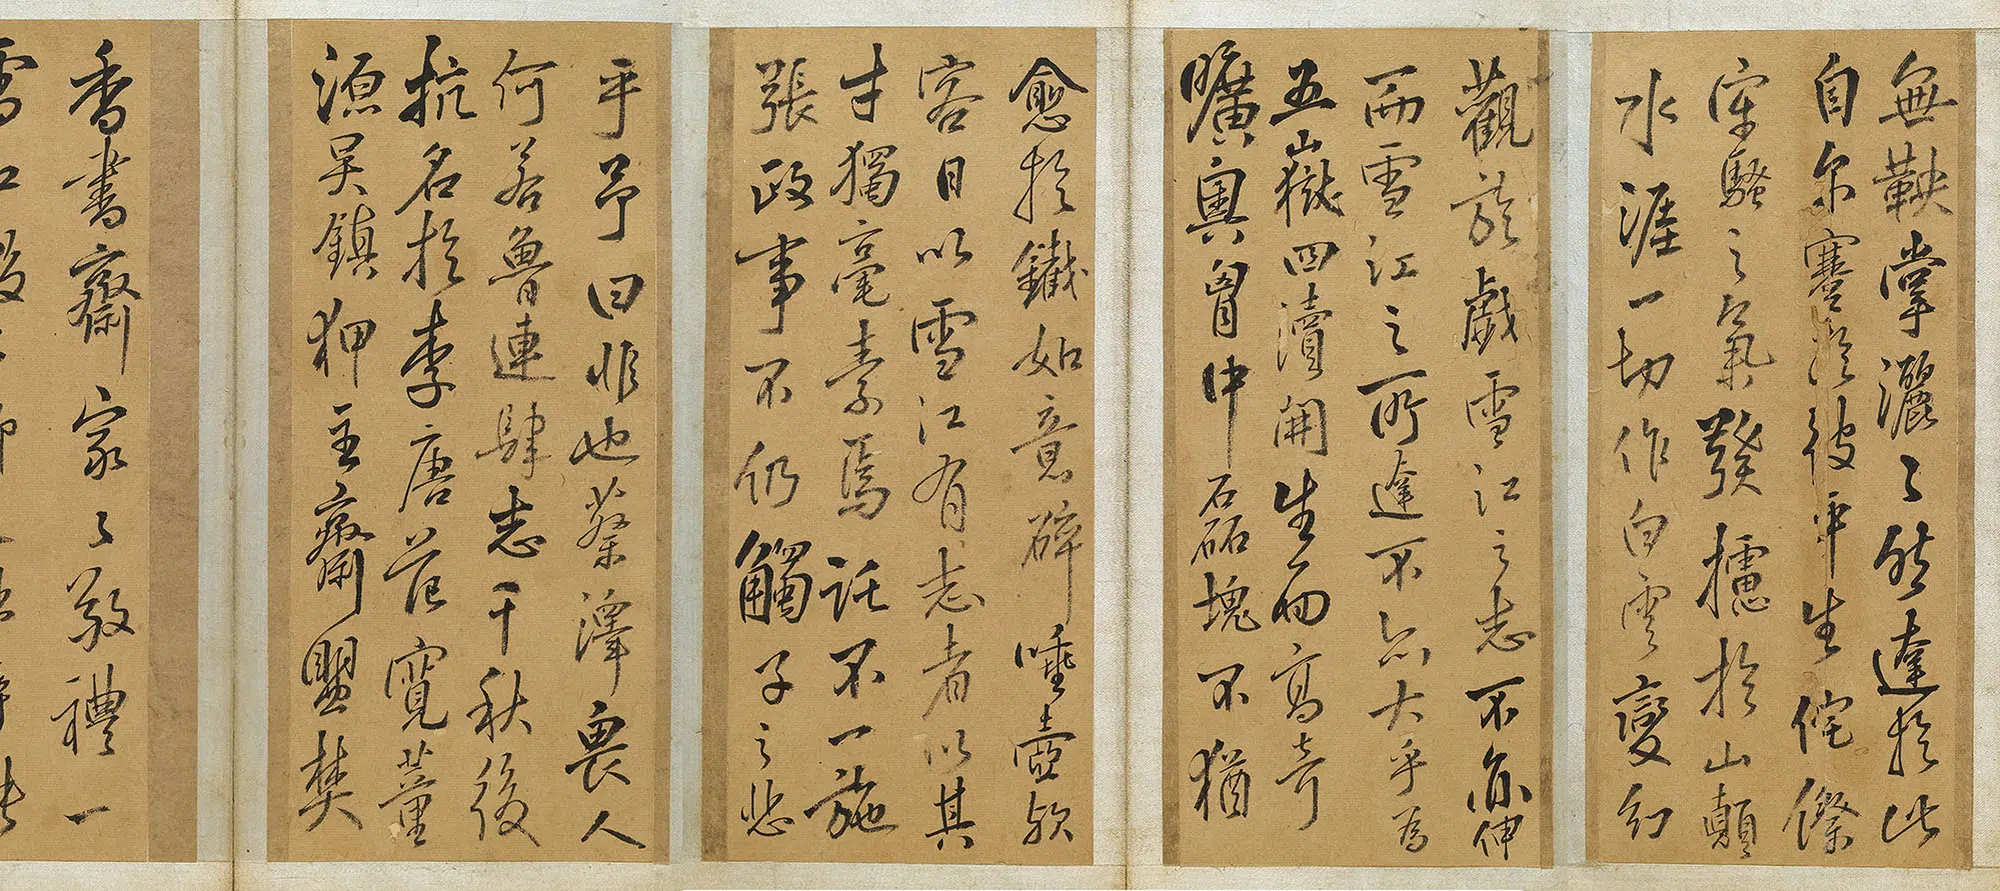 無鞅掌灑々然達於此
自尔蹇於彼平生侘傺
牢騷之氣發攄於山顛
水涯一切作白雲變幻
觀於戲雪江之志不亦伸
而雪江之所達不亦大乎為
五嶽四瀆開生面高奇
曠奧胷中磊塊不猶
愈於鐵如意碎唾壺歟
客曰以雪江有志者以其
才獨毫素焉託不一施
張政事不仍觸子之悲
乎予曰非也蔡澤畏人
何若魯連肆志千秋後
抗名於李唐范寬董
源吳鎮狎主齋盟樊
香書齋家々敬禮一
雪江